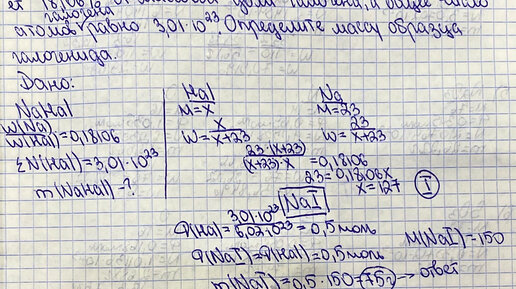 галогена
атомов равно 3,01·10²³. Определите массу образца
галогенида.
Дано:
NaHal
W(Na)
W(Hal) =0,18106
ΣN(Hal)=3,01·10²³
m(NaHal)-?
Hal
M=x
W= x/x+23
Na
M=23
W= 23/x+23
23·(x+23)/(x+23)·x =0,18106
23=0,18106x
x=127 I
NaI
(Hal)= 3,01·10²³/6,02·10²³ =0,5моль
(NaI)= (Hal)=0,5моль
M(NaI)=150
m(NaI)=0,5·150=75г → ответ